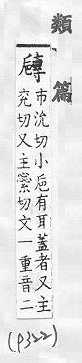 類篇
市沇切小巵有耳蓋者又主
兖切又主縈切文一重音二
(p322)